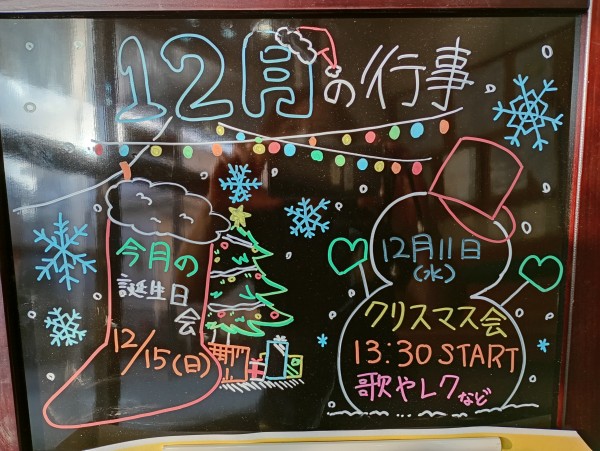 12月の行事
今月の
誕生日
会
12/15(日)
12月11日
(水)
クリスマス会
13:30 START
歌やレクなど